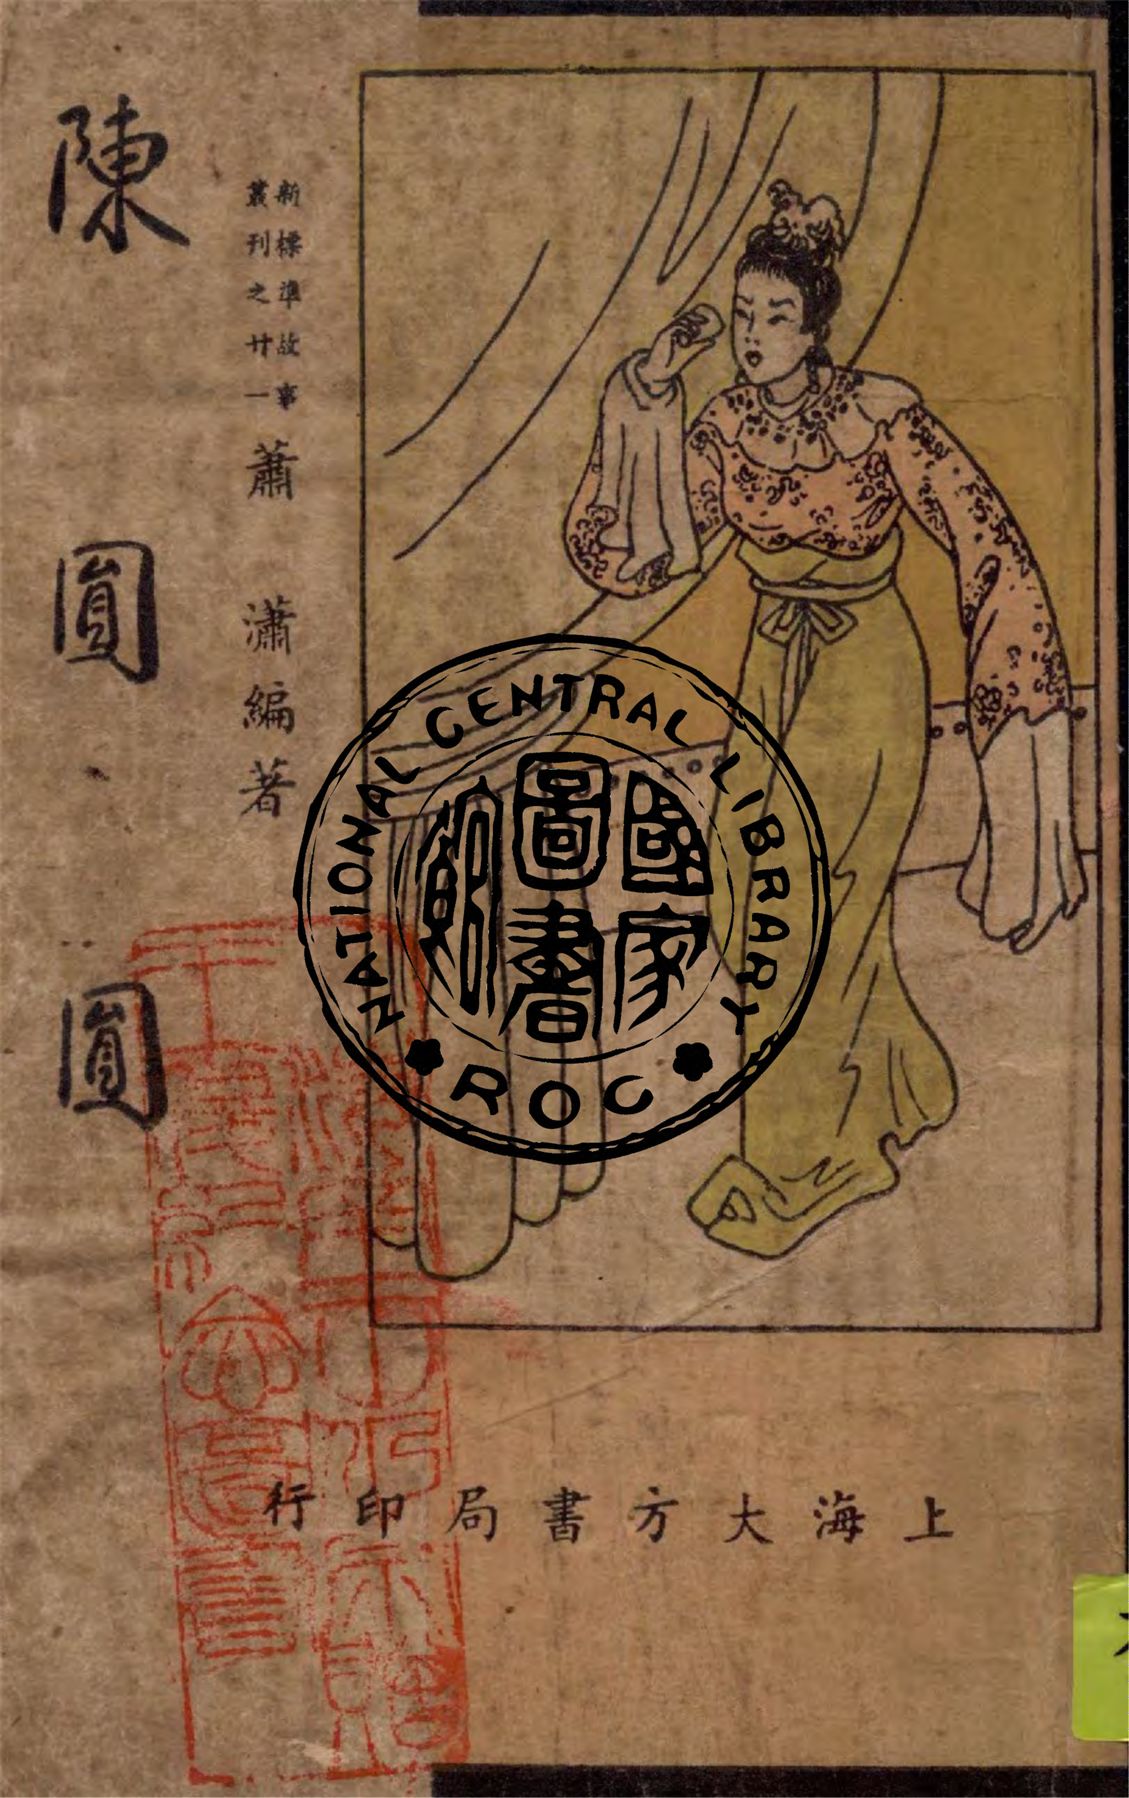 陳圓圓
新標準故事
叢刊之廿一
蕭瀟編著
上海大方書局印行
NATIONAL CENTRAL LIBRARY
ROC
國家
圖書
館